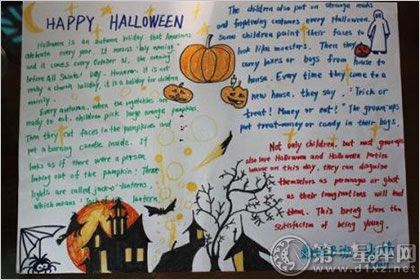 HAPPY HALLOWEEN
Halloween is an autumn holiday that Americans
celebrate every year. It means "holy evening"
and it comes every October 31, the evening
before All Saints' Day. However, it is not
really a church holiday, it is a holiday for children
mainly.
Every autumn, when the vegetables are
ready to eat, children pick large orange pumpkins.
Then they cut faces in the pumpkins and
put a burning candle inside. It
looks as if there were a person
looking out of the pumpkin! These
lights are called jack-o'-lanterns,
which means "Jack of the lantern.
The children also put on strange masks
and frightening costumes every Halloween.
Some children paint their faces to
look like monsters. Then they
carry boxes or bags from house to
house. Every time they come to a
new house, they say: "Trick or
treat! Money or eat!" The grown-ups
put treat-money or candy in their bags.
Not only children, but most grown-ups
also love Halloween and Halloween parties
because on this day, they can disguise
themselves as personages or ghost
as their imaginations will lead
them. This bring them the
satisfaction of being young.
第一星座网
www.d1xz.net